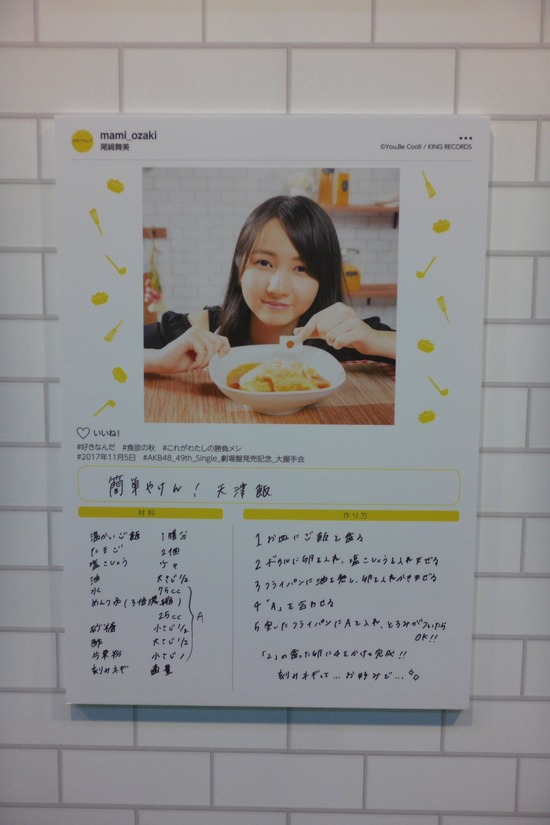 mami_ozaki
尾﨑舞美
©You,Be Cool! / KING RECORDS
いいね!
#好きなんだ #食欲の秋 #これがわたしの勝負メシ
#2017年11月5日 #AKB48_49th_Single_劇場盤発売記念_大握手会
簡単やけん! 天津飯
材料
温かいご飯 1膳分
たまご 2個
塩こしょう 少々
油 大さじ1/2
水 75cc
めんつゆ(3倍濃縮)
25cc
A
砂糖 小さじ1/2
酢 大さじ1/2
片栗粉 小さじ1
刻みネギ 適量
作り方
1 お皿にご飯を盛る
2 ボウルに卵を入れ、塩こしょうを入れまぜる
3 フライパンに油を熱し、卵を入れかきまぜる
4 "A"を合わせる
5 空いたフライパンにAを入れ、とろみがついたら
OK!!
「2」の盛った卵に4をかけて完成!!
刻みネギして...お好みで...